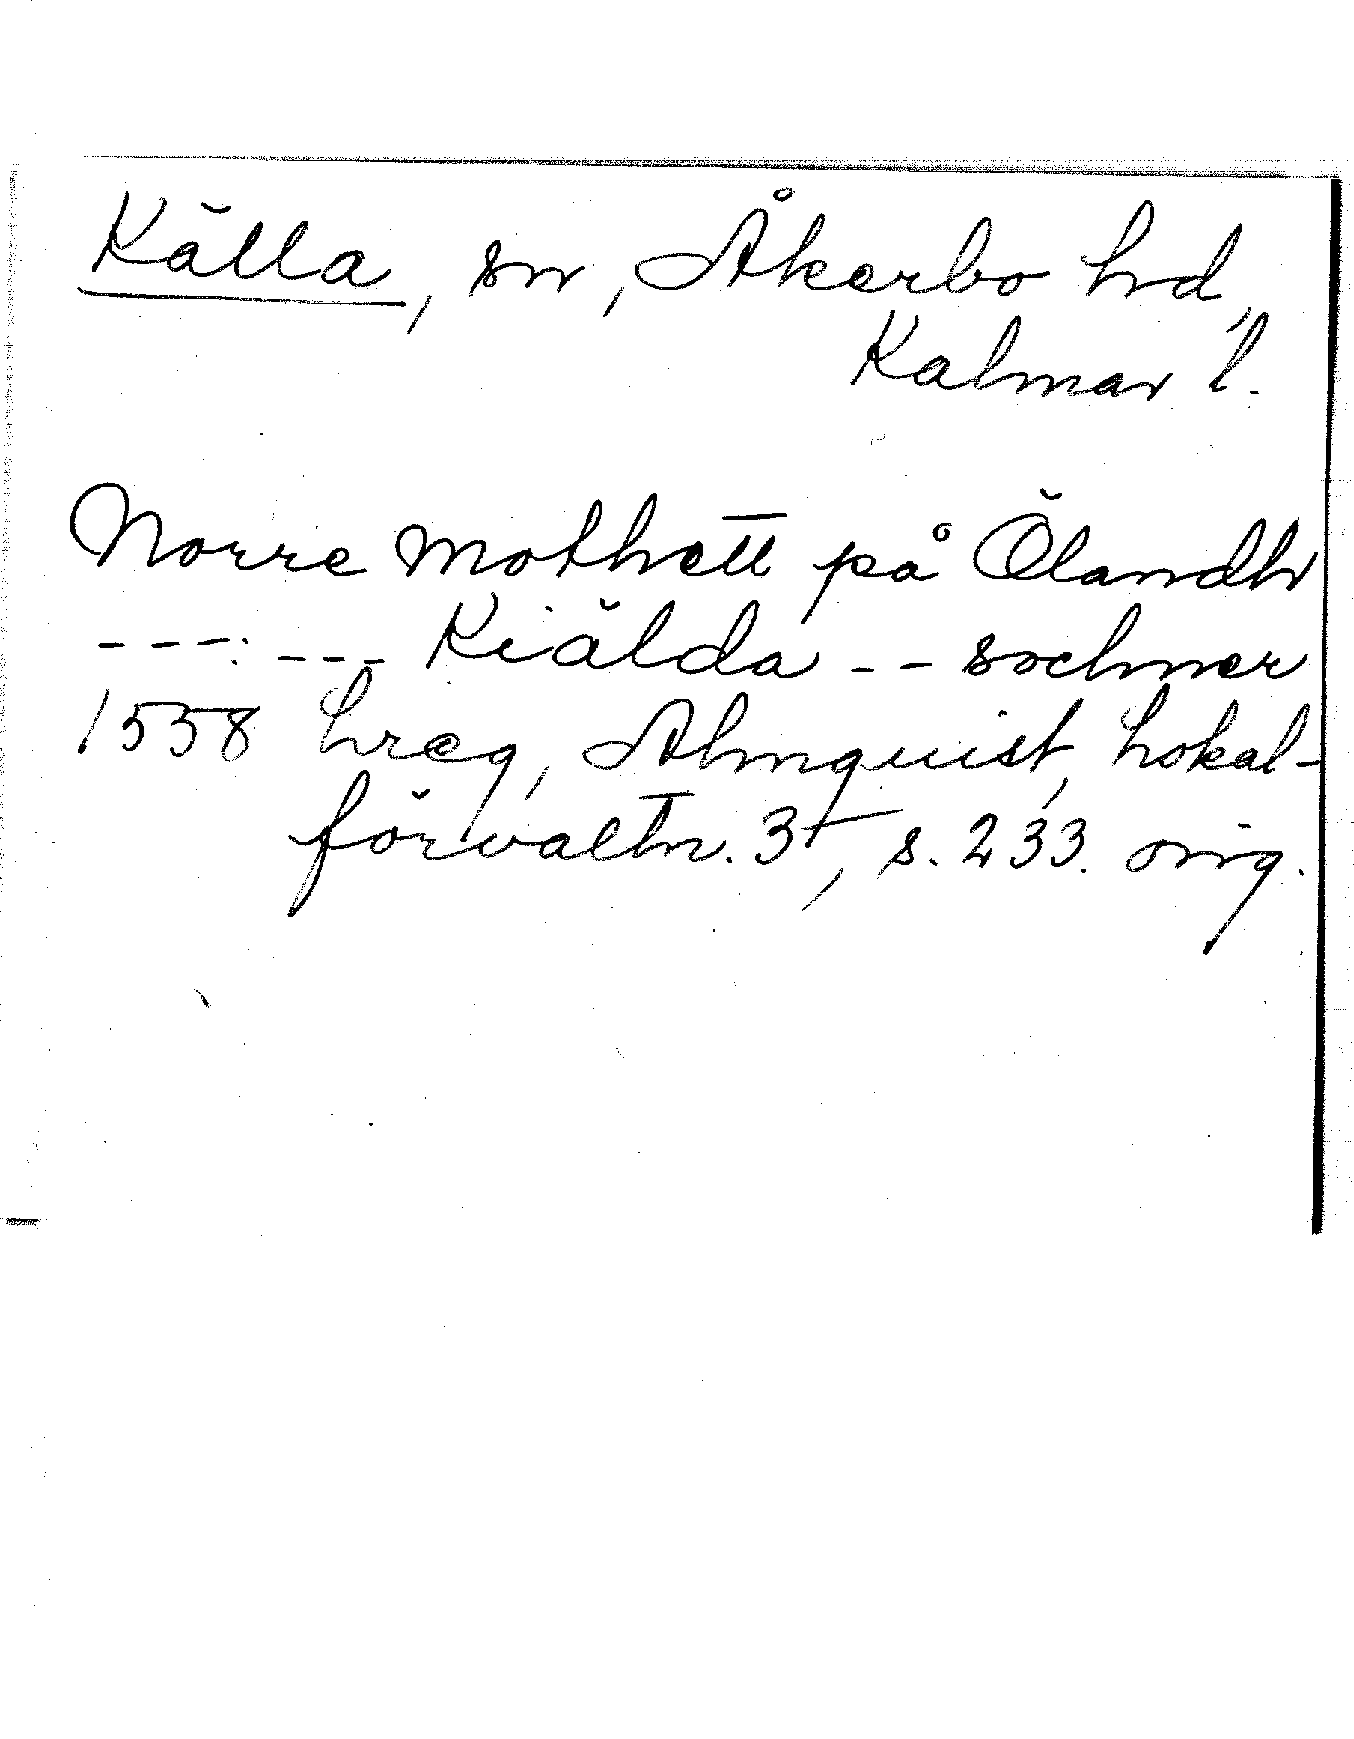 Källa, sn, Åkerbo hd,
Kalmar l.
Norre Mothett på Ölandh
---:--- Kiälda -- sochner
1558 Lreg, Almquist, Lokal-
förvaltn. 3, s. 233. orig.